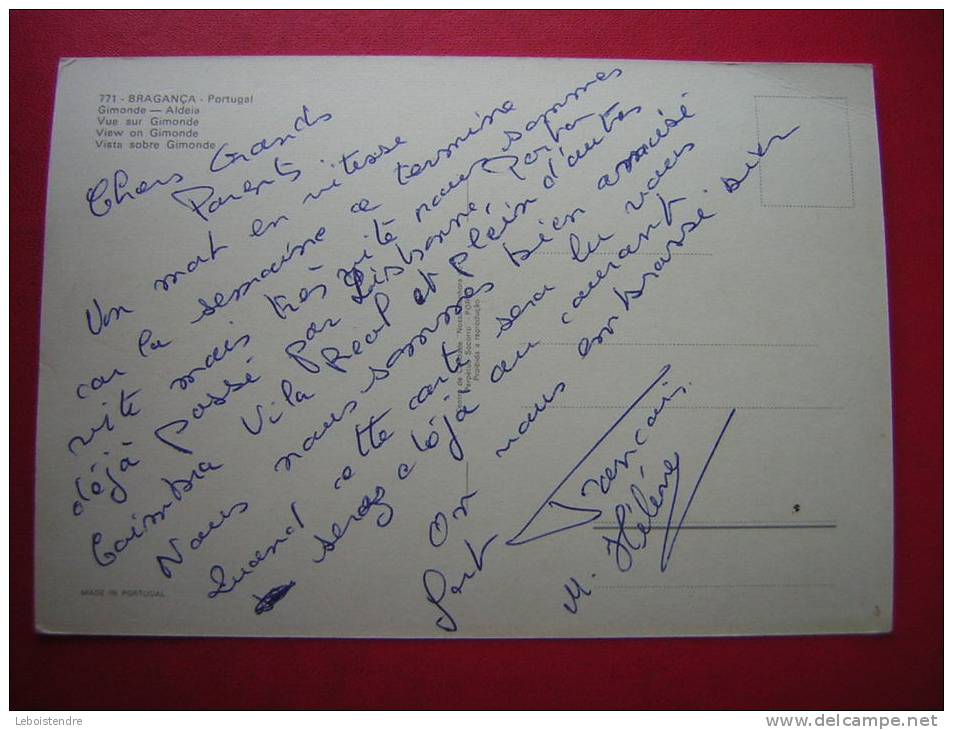 771 - BRAGANÇA - Portugal
Gimonde — Aldeia
Vue sur Gimonde
View on Gimonde
Vista sobre Gimonde
Chers Grands
Parents
Un mot en vitesse
car la semaine a terminé
vite mais très vite nous sommes
déjà passé par Lisbonne Porto
Coimbra Vila Real et plein d'autres
Nous nous sommes bien amusé
Quand cette carte sera lu vous
serez déjà au courant
On vous embrasse bien
fort
François
M. Hélène
Perpétuo Socorro" - PORTO
Proibida a reprodução
MADE IN PORTUGAL
Leboistendre
www.delcampe.net